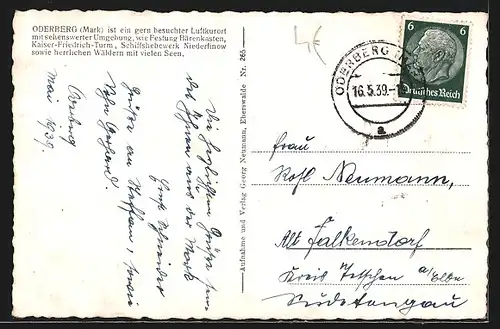 ODERBERG (Mark) ist ein gern besuchter Luftkurort
mit sehenswerter Umgebung, wie Festung Bärenkasten,
Kaiser-Friedrich-Turm, Schiffshebewerk Niederfinow
sowie herrlichen Wäldern mit vielen Seen.
Oderberg
Mai 1939.
Die herzlichsten Grüße sen-
det Ihnen aus der Mark
Grüße an
Aufnahme und Verlag Georg Neumann, Eberswalde Nr. 265
4€
ODERBERG
16.5.39.-1
a
6 6
Deutsches Reich
Frau
Neumann,
Alt Falkendorf
Kreis Tetschen a/Elbe
Sudetengau